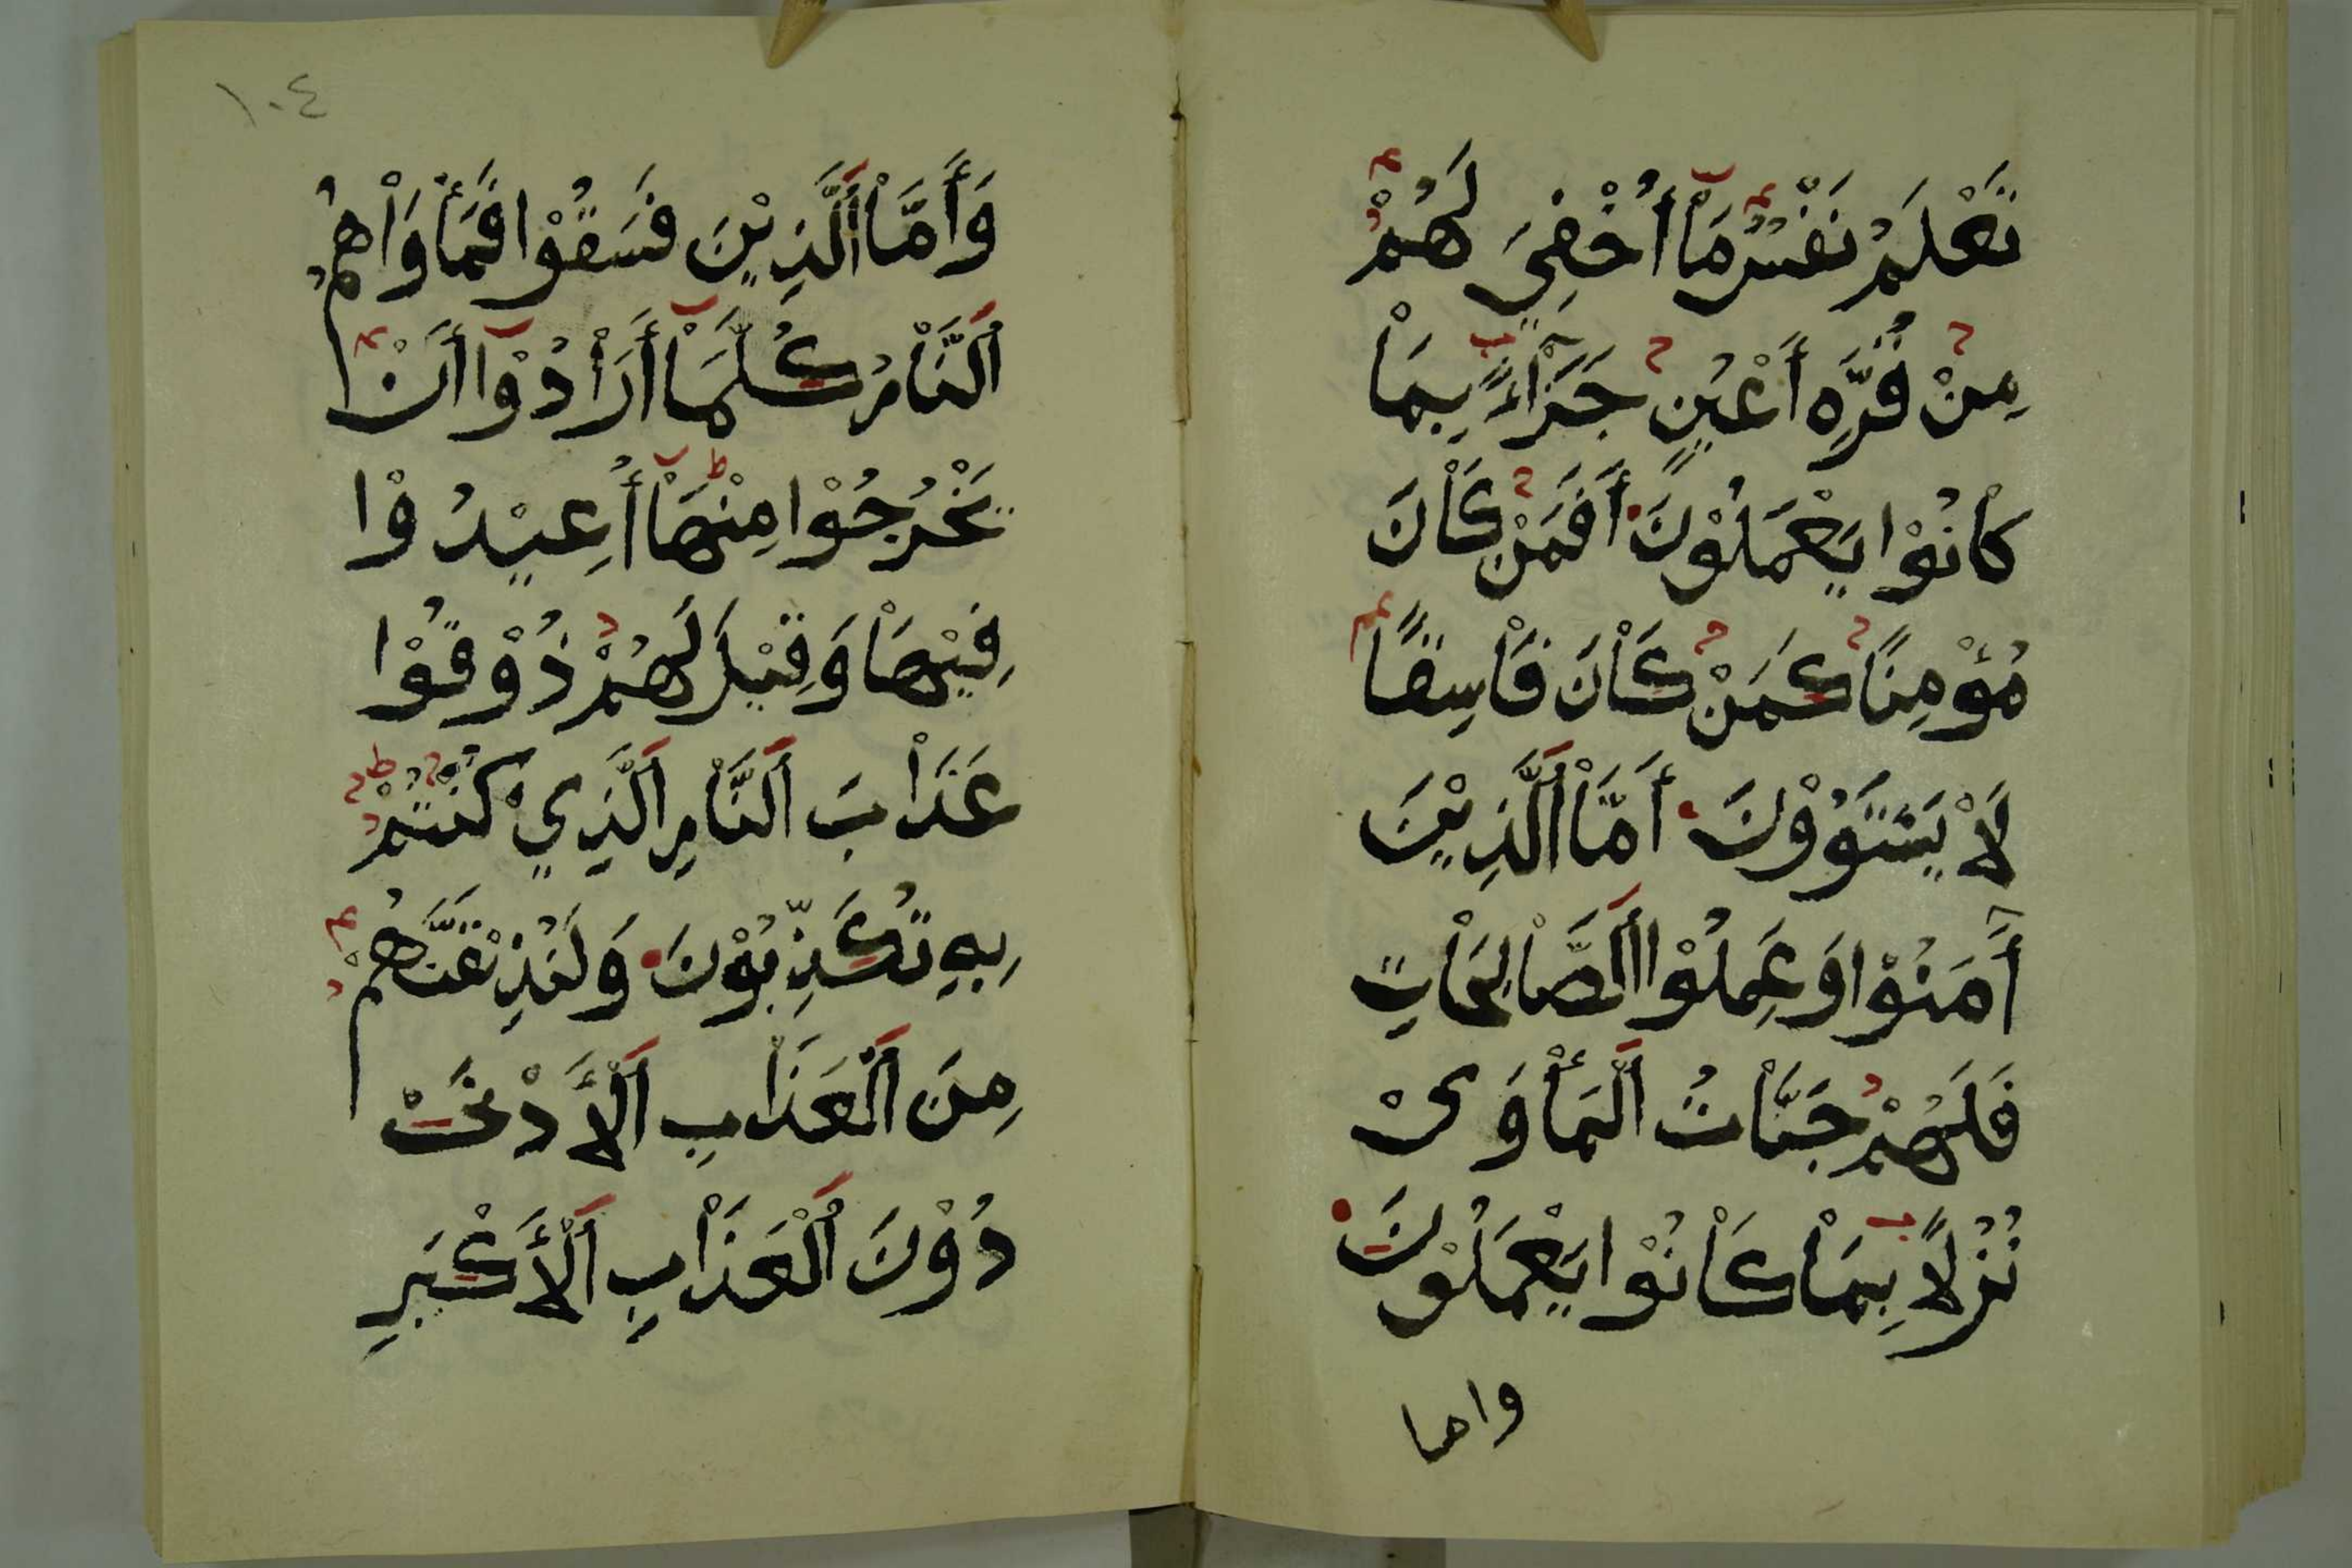 تَعْلَمُ نَفْسٌ مَاْ أُخْفِيَ لَهُمْ
مِنْ قُرَّهِ أَعْيُنٍ جَزَاْءً بِمَاْ
كاْنُوْا يَعْمَلُوْنَ أَفَمَنْ كَاْنَ
مُؤْمِنًا كَمَنْ كَاْنَ فَاْسِقًا
لَاْ يَسْتَوُوْنَ أَمَّاْ اَلَّذِيْنَ
آمَنُوْا وَعَمِلُوْا اَلصَّاْلِحَاْتِ
فَلَهُمْ جَنَّاْتُ اَلْمَأْوَىْ
نُزُلًا بِمَاْ كَاْنُوْا يَعْمَلُوْنَ
واما
١٠٤
وَأَمَّاْ اَلَّذِيْنَ فَسَقُوْا فَمَأْوَاْهُمُ
اَلنَّاْرُ كُلَّمَاْ أَرَاْدُوْا أَنْ
يَخْرُجُوْا مِنْهَاْ أُعِيْدُوْا
فِيْهَاْ وَقِيْلَ لَهُمْ ذُوْقُوْا
عَذَاْبَ اَلنَّاْرِ اَلَّذِيْ كُنْتُمْ
بِهِ تُكَذِّبُوْنَ وَلَنُذِيْقَنَّهُمْ
مِنَ اَلْعَذَاْبِ اَلْأَدْنَىْ
دُوْنَ اَلْعَذَاْبِ اَلْأَكْبَرِ